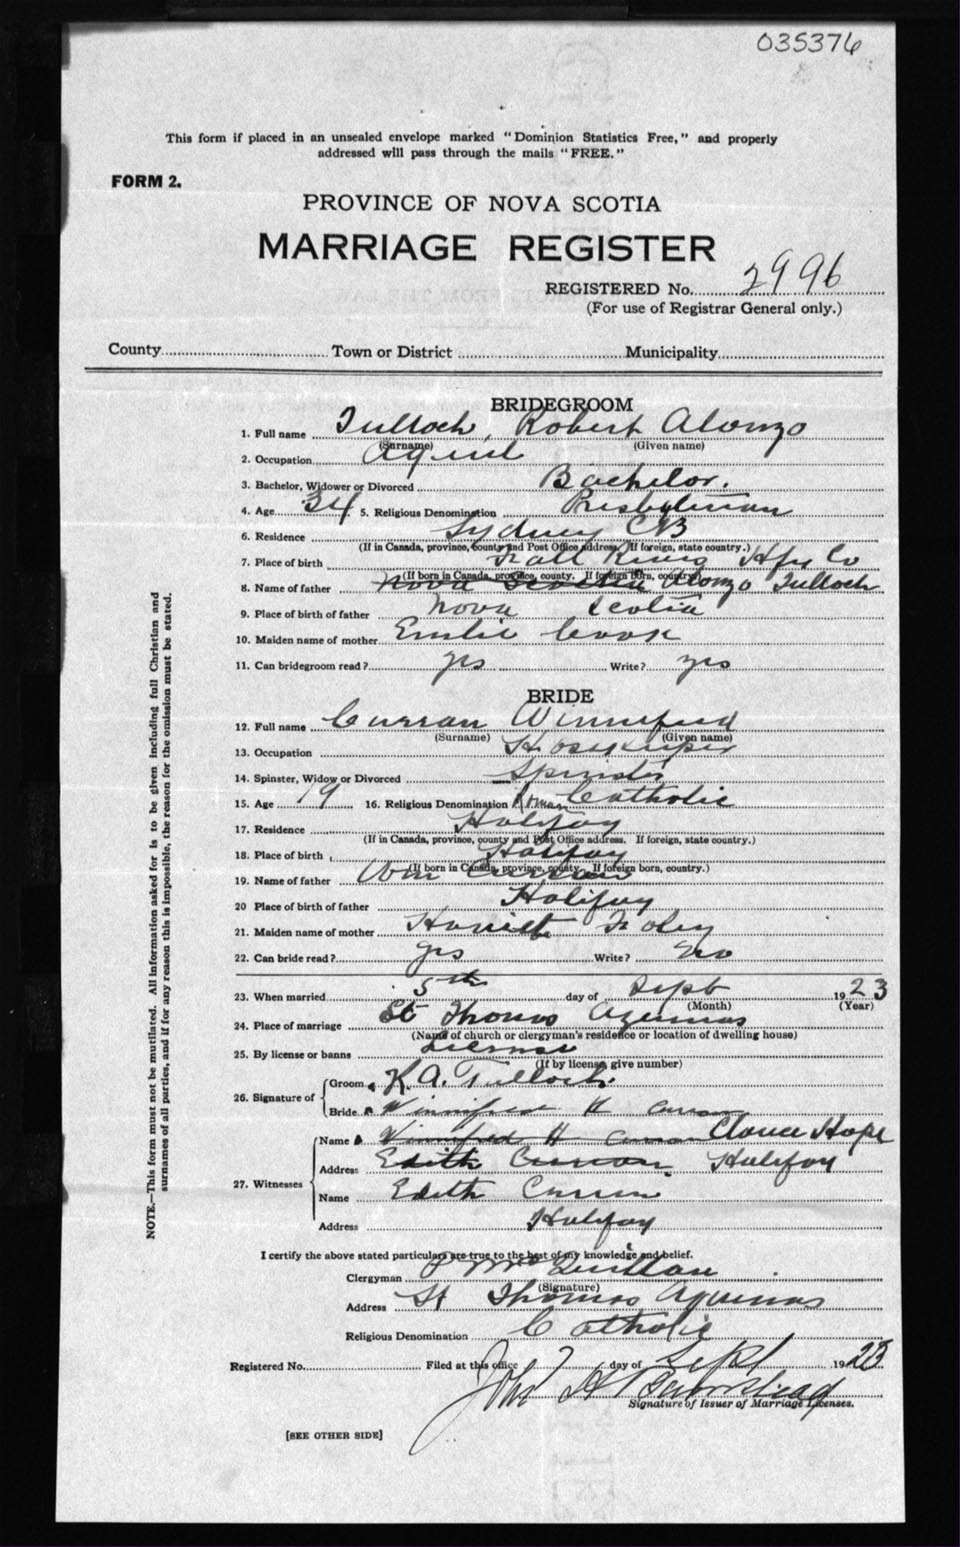 035376
This form if placed in an unsealed envelope marked "Dominion Statistics Free," and properly
addressed will pass through the mails "FREE."
FORM 2.
PROVINCE OF NOVA SCOTIA
MARRIAGE REGISTER
REGISTERED No. 2996
(For use of Registrar General only.)
County Town or District Municipality
BRIDEGROOM
1. Full name Tulloch, Robert Alonzo
(Surname) (Given name)
2. Occupation Agent
3. Bachelor, Widower or Divorced Bachelor.
4. Age 34 5. Religious Denomination Presbyterian
6. Residence Sydney CB
(If in Canada, province, county and Post Office address. If foreign, state country.)
7. Place of birth Hfx Co
(If born in Canada, province, county. If foreign born, country.)
8. Name of father Nova Scotia Alonzo Tulloch
9. Place of birth of father Nova Scotia
10. Maiden name of mother Emilie Cook
11. Can bridegroom read? yes Write? yes
BRIDE
12. Full name Curran Winnifred
(Surname) (Given name)
13. Occupation
14. Spinster, Widow or Divorced Spinster
15. Age 19 16. Religious Denomination Roman Catholic
17. Residence Halifax
(If in Canada, province, county and Post Office address. If foreign, state country.)
18. Place of birth Halifax
(If born in Canada, province, county. If foreign born, country.)
19. Name of father Wm Curran
20 Place of birth of father Halifax
21. Maiden name of mother Harriett Foley
22. Can bride read? yes Write?
23. When married 5th day of Sept 1923
(Month) (Year)
24. Place of marriage St Thomas Aquinas
(Name of church or clergyman's residence or location of dwelling house)
25. By license or banns License
(If by license, give number)
26. Signature of Groom R. A. Tulloch.
Bride Winnifred H Curran
27. Witnesses Name Winnifred H Curran Hope
Address Edith Curran. Halifax
Name Edith Curran
Address Halifax
I certify the above stated particulars are true to the best of my knowledge and belief.
Clergyman
(Signature)
Address St Thomas Aquinas
Religious Denomination Catholic
Registered No. Filed at this office 7 day of Sept 1923
John
Signature of Issuer of Marriage Licenses.
[SEE OTHER SIDE]
NOTE.—This form must not be mutilated. All information asked for is to be given including full Christian and
surnames of all parties, and if for any reason this is impossible, the reason for the omission must be stated.